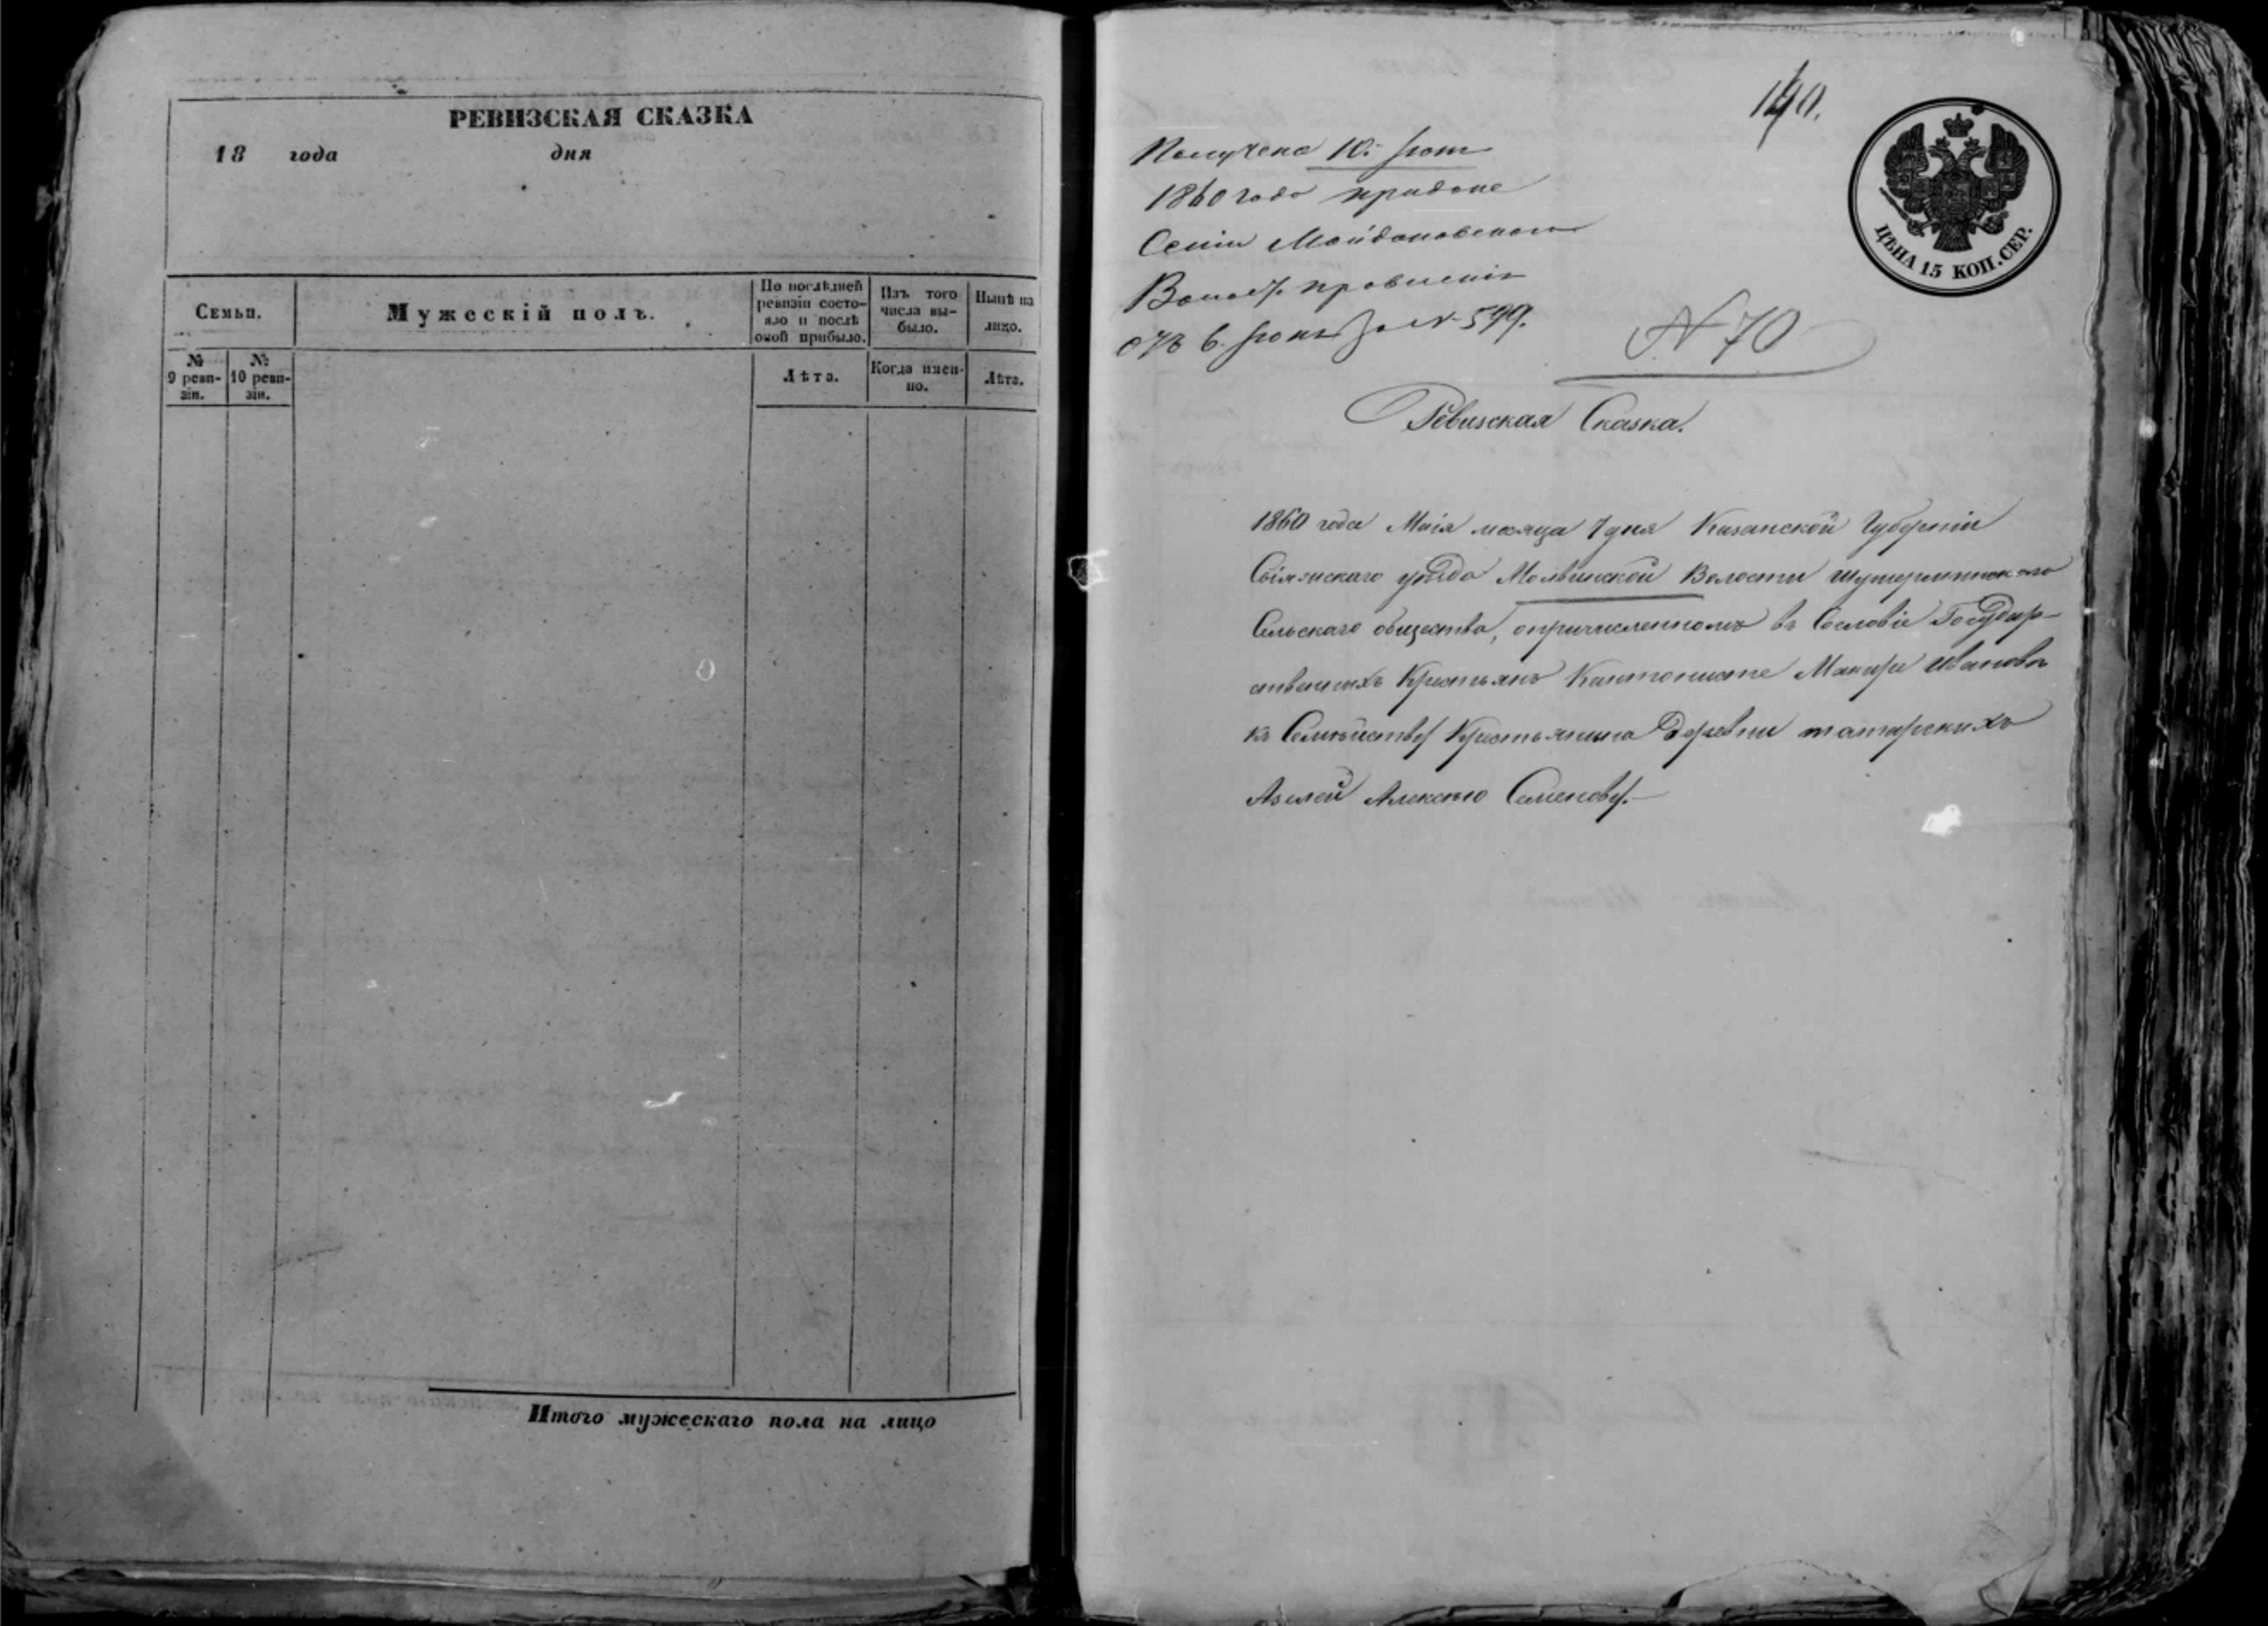 РЕВИЗСКАЯ СКАЗКА
18 года дня
Семьи.
Мужескій полъ.
По послѣдней ревизіи состояло и послѣ оной прибыло.
Изъ того числа выбыло.
Нынѣ на лицо.
№ 9 ревизіи.
№ 10 ревизіи.
Лѣта.
Когда именно.
Лѣта.
Итого мужескаго пола на лицо
140.
ЦѢНА 15 КОП. СЕР.
Получена 10.
1860 года при доне
сеніи Майдановскаго
Волос. правленія
отъ 6. за № 599.
№ 70
Ревизская Сказка.
1860 года Маія месяца 7 дня Казанской Губерніи
Свіяжскаго уѣзда Молвинской Волости
Сельскаго общества, опричисленномъ въ Сословіе Государ-
ственныхъ Крестьянъ Кантонисте Макаре Иванове
къ Семѣйству Крестьянина Деревни татарскихъ
Азелей Алексѣю Семенову.